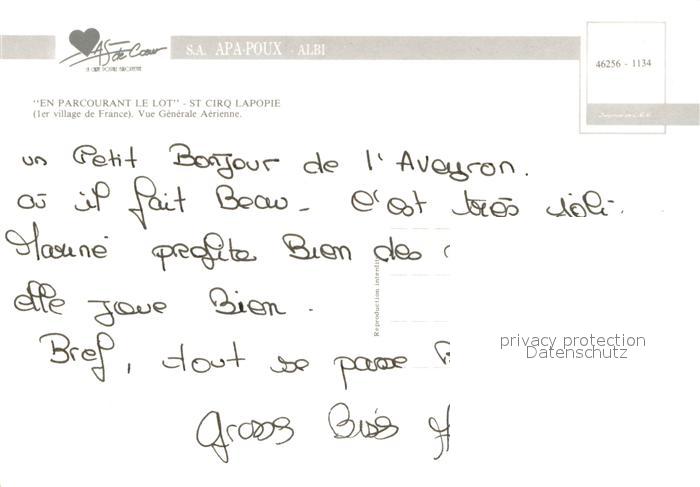 As de Cœur
LA CARTE POSTALE PARCHEMINÉE
S.A. APA-POUX - ALBI
46256 - 1134
"EN PARCOURANT LE LOT" - ST CIRQ LAPOPIE
(1er village de France). Vue Générale Aérienne.
un Petit Bonjour de l'Aveyron.
où il fait Beau - C'est très joli.
profite Bien des
elle joue Bien.
Bref, tout se passe B
Grosses Bises
Reproduction interdite
privacy protection
Datenschutz